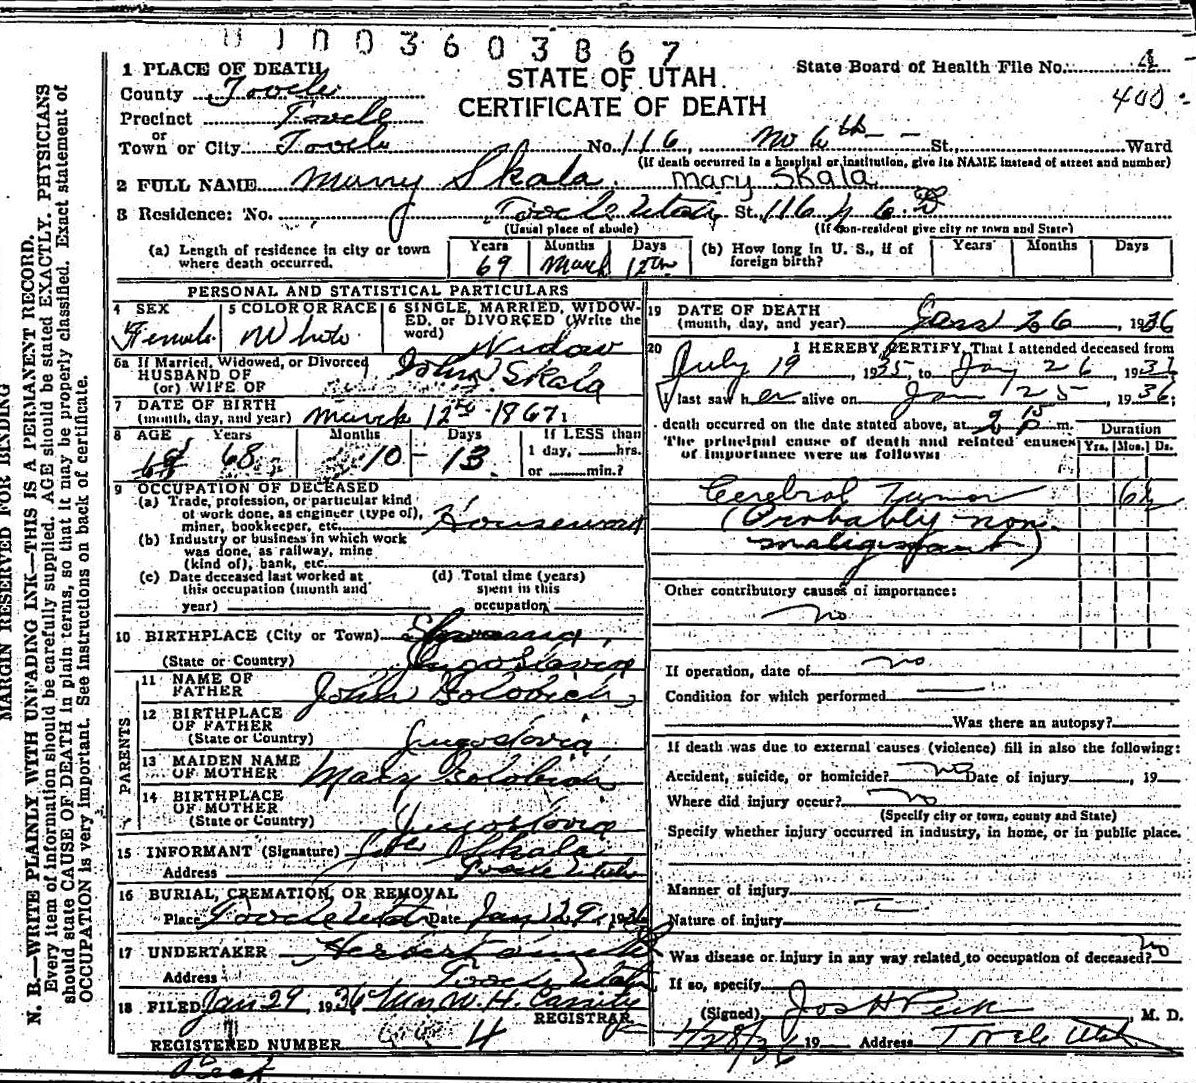 U 1 0 0 3 6 0 3 8 6 7
1 PLACE OF DEATH
STATE OF UTAH
CERTIFICATE OF DEATH
State Board of Health File No. 4
400
County Tooele
Precinct Tooele
or
Town or City Tooele No. 116, No 6th St., Ward
(If death occurred in a hospital or institution, give its NAME instead of street and number)
2 FULL NAME Mary Skala. Mary Skala
3 Residence: No. Tooele Utah St. 116 N 6
(Usual place of abode) (If non-resident give city or town and State)
(a) Length of residence in city or town where death occurred. Years 69 Months March Days 12th
(b) How long in U. S., if of foreign birth? Years Months Days
PERSONAL AND STATISTICAL PARTICULARS
4 SEX Female
5 COLOR OR RACE White
6 SINGLE, MARRIED, WIDOWED, or DIVORCED (Write the word) Widow
6a If Married, Widowed, or Divorced
HUSBAND OF
(or) WIFE OF John Skala
7 DATE OF BIRTH
(month, day, and year) March 12th 1867
8 AGE Years 68 Months 10 Days 13
If LESS than
1 day, hrs.
or min.?
9 OCCUPATION OF DECEASED
(a) Trade, profession, or particular kind
of work done, as engineer (type of),
miner, bookkeeper, etc. Housework
(b) Industry or business in which work
was done, as railway, mine
(kind of), bank, etc.
(c) Date deceased last worked at
this occupation (month and
year)
(d) Total time (years)
spent in this
occupation
10 BIRTHPLACE (City or Town)
(State or Country) Jugoslavia
PARENTS
11 NAME OF
FATHER John Golobich
12 BIRTHPLACE
OF FATHER
(State or Country) Jugoslovia
13 MAIDEN NAME
OF MOTHER Mary Golobich
14 BIRTHPLACE
OF MOTHER
(State or Country) Jugoslovia
15 INFORMANT (Signature) Joe Skala
Address Tooele Utah
16 BURIAL, CREMATION, OR REMOVAL
Place Tooele Utah Date Jan 29, 1936
17 UNDERTAKER
Address Tooele Utah
18 FILED Jan 29 1936 Mrs W. H. Cassity
REGISTRAR
REGISTERED NUMBER 4
19 DATE OF DEATH
(month, day, and year) Jan 26, 1936
20 I HEREBY CERTIFY, That I attended deceased from
July 19, 1935, to Jan 26, 1936
I last saw her alive on Jan 25, 1936;
death occurred on the date stated above, at 9 15 P m.
The principal cause of death and related causes
of importance were as follows:
Duration
Yrs. Mos. Ds.
Cerebral Tumor
(Probably non-
malignant)
Other contributory causes of importance:
no
If operation, date of no
Condition for which performed
Was there an autopsy?
If death was due to external causes (violence) fill in also the following:
Accident, suicide, or homicide? no Date of injury , 19
Where did injury occur? no
(Specify city or town, county and State)
Specify whether injury occurred in industry, in home, or in public place.
Manner of injury
Nature of injury
Was disease or injury in any way related to occupation of deceased? no
If so, specify
(Signed) Jos H Peck, M. D.
1/28/36 19 Address Tooele Utah
MARGIN RESERVED FOR BINDING
N. B.—WRITE PLAINLY WITH UNFADING INK—THIS IS A PERMANENT RECORD.
Every item of information should be carefully supplied. AGE should be stated EXACTLY. PHYSICIANS
should state CAUSE OF DEATH in plain terms, so that it may be properly classified. Exact statement of
OCCUPATION is very important. See instructions on back of certificate.